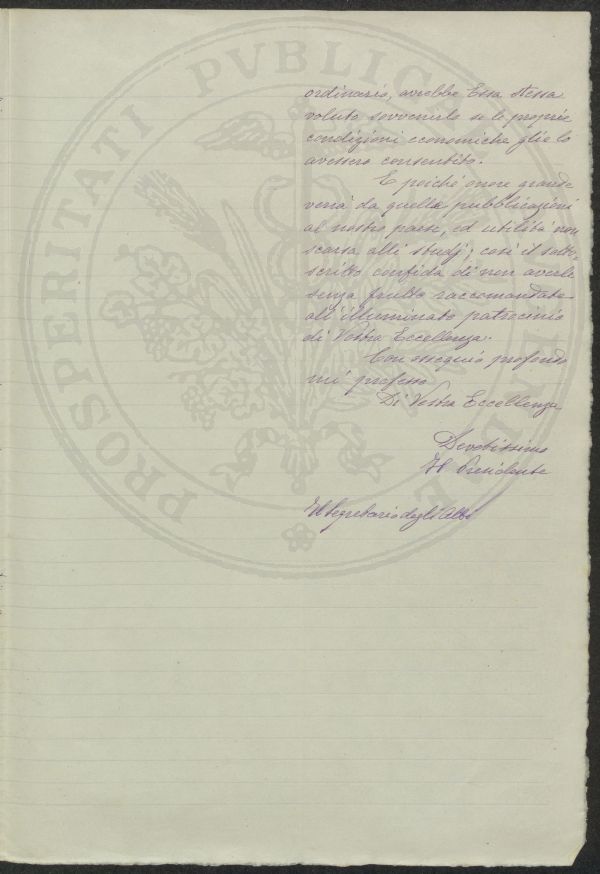 PROSPERITATI PVBLICAE
ordinario, avrebbe Essa stessa
voluto sovvenirlo se le proprie
condizioni economiche glie lo
avessero consentito.
E poichè onore grande
verrà da quella pubblicazioni
al nostro paese, ed utilità non
scarsa alli studj; così il sotto-
scritto confida di non averle
senza frutto raccomandate
all'illuminato patrocinio
di Vostra Eccellenza.
Con ossequio profondo
mi professo
Di Vostra Eccellenza
Devotissimo
Il Presidente
Il Segretario degli Atti